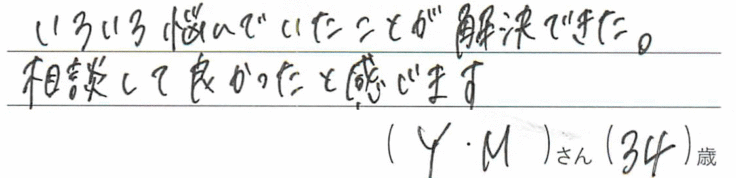 いろいろ悩んでいたことが解決できた。
相談して良かったと感じます
(Y・M)さん(34)歳